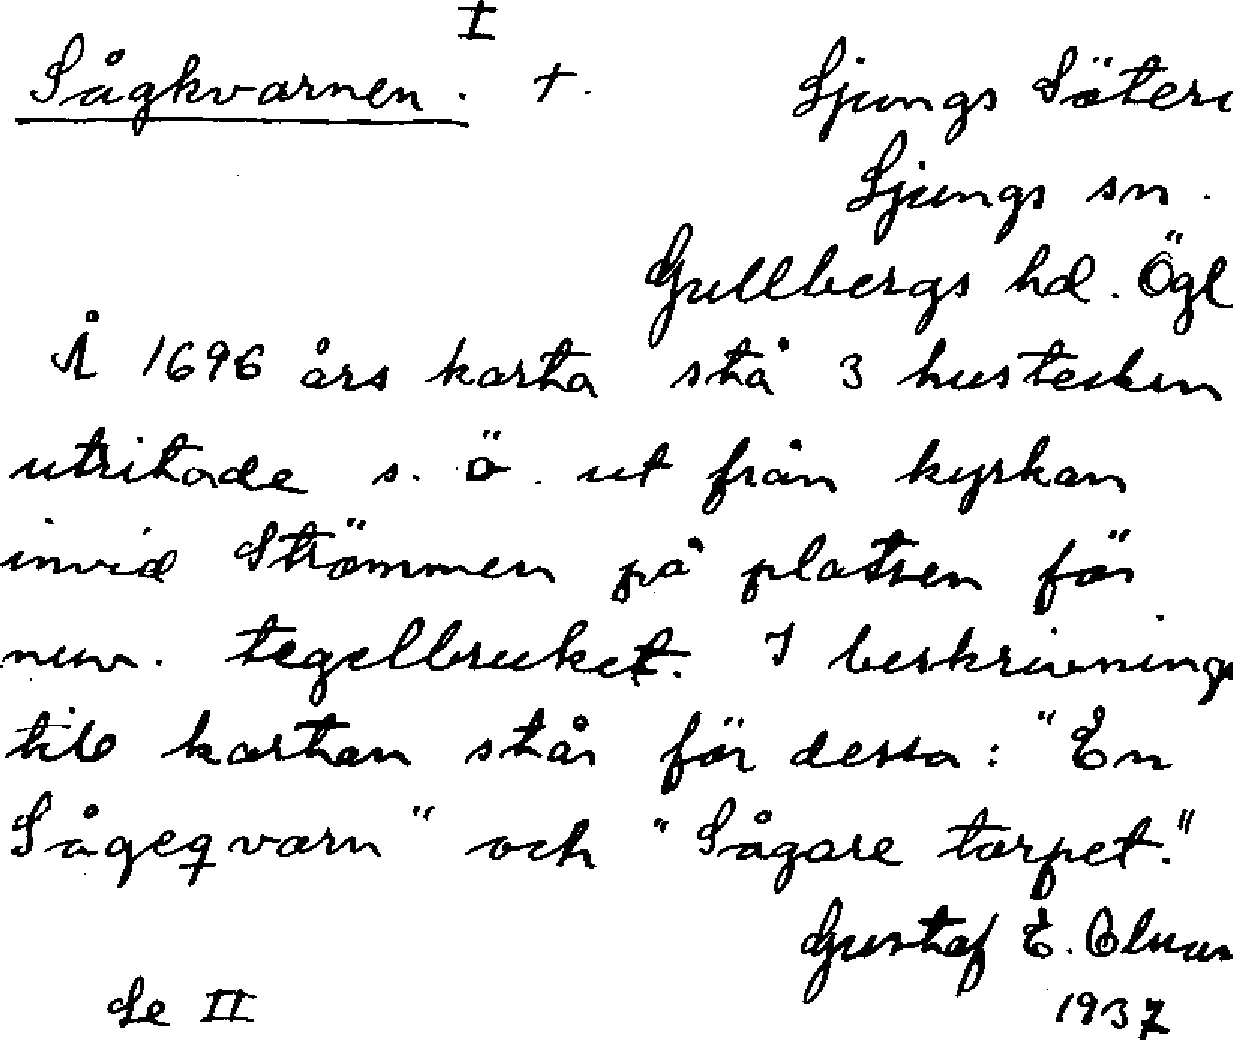 I
Sågkvarnen. +.
Ljungs Säteri
Ljungs sn.
Gullbergs hd. Ögl
Å 1696 års karta stå 3 hustecken
utritade s. ö. ut från kyrkan
invid Strömmen på platsen för
nuv. tegelbruket. I beskrivning
till kartan står för dessa: "En
Sågeqvarn" och "Sågare torpet."
Gustaf E.
1937
Se II